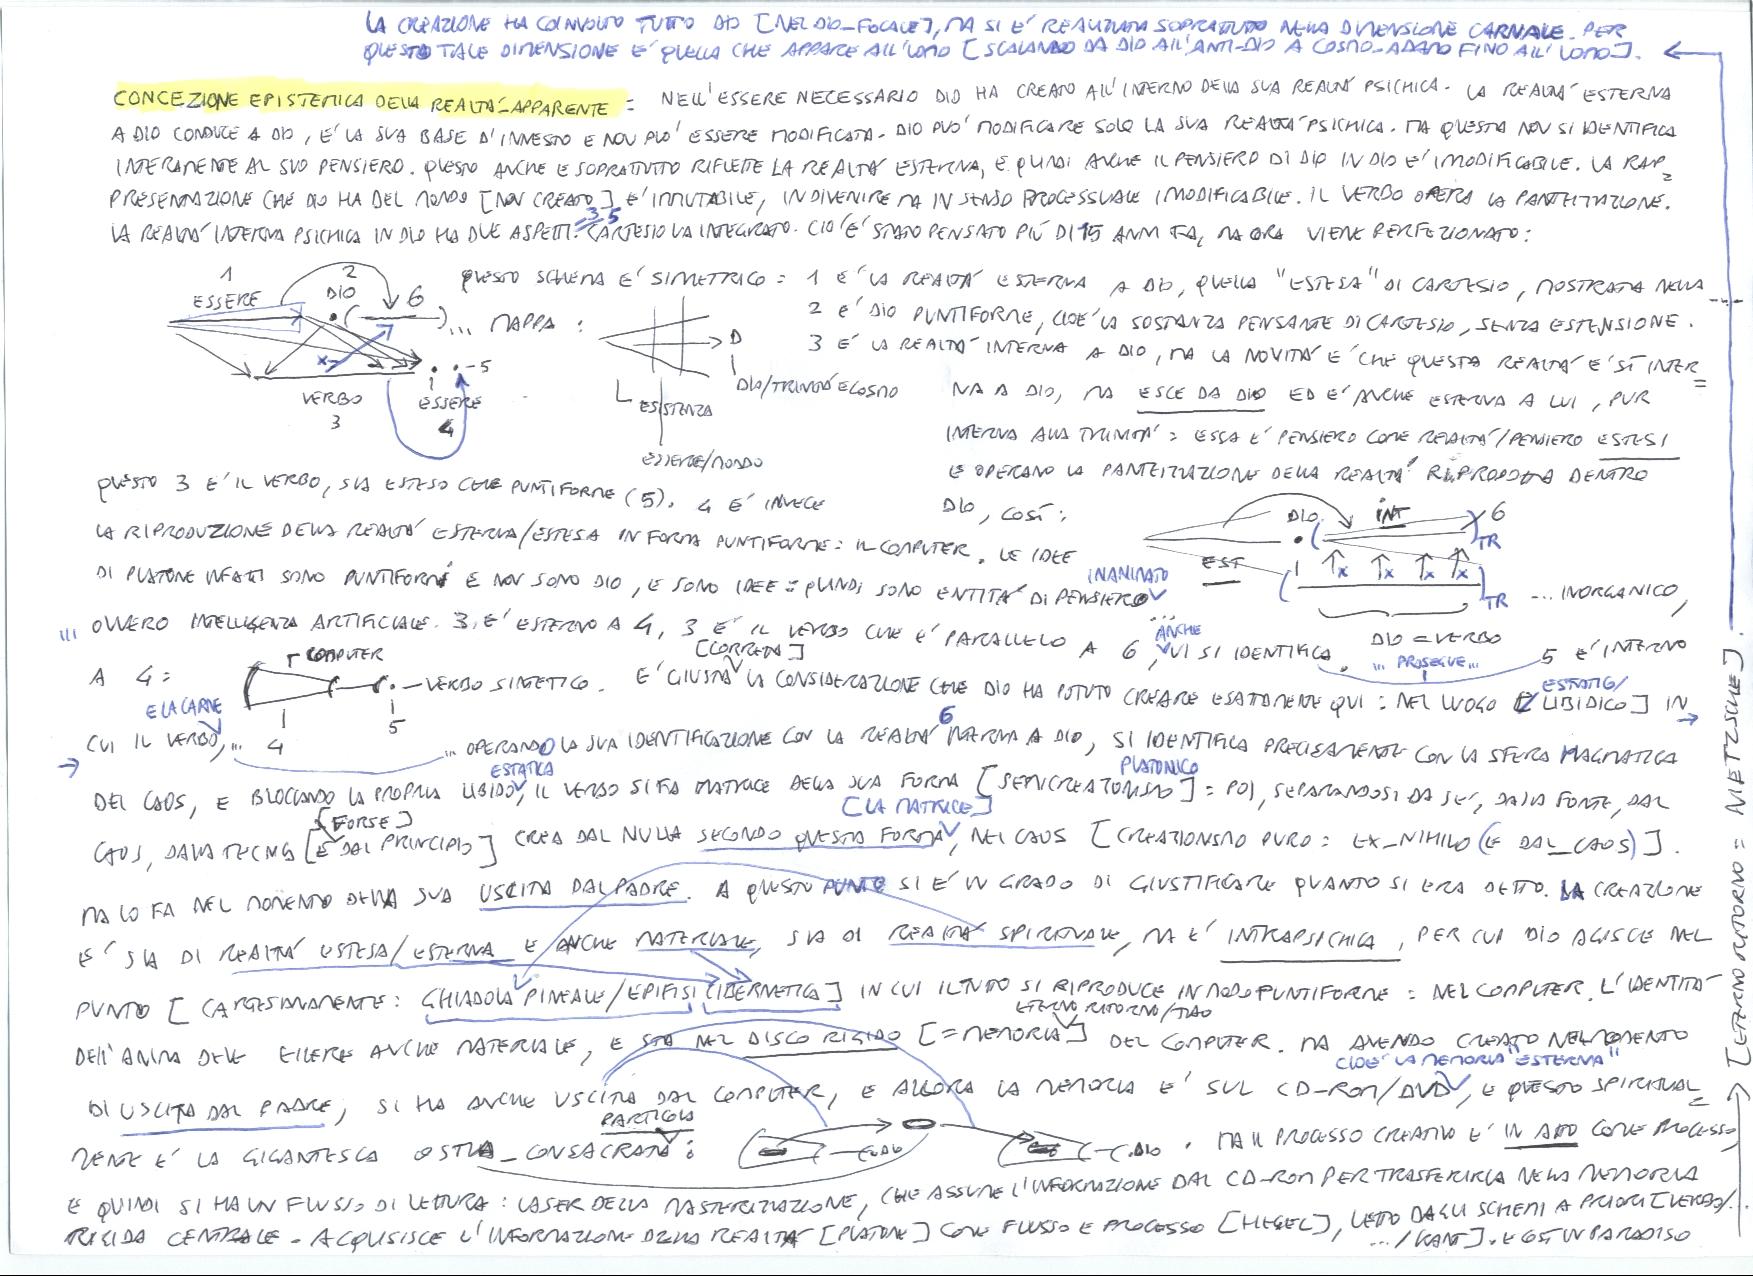 LA CREAZIONE HA COINVOLTO TUTTO DIO [NEL DIO-FOCALE], MA SI E' REALIZZATA SOPRATTUTTO NELLA DIMENSIONE CARNALE. PER
QUESTO TALE DIMENSIONE E' QUELLA CHE APPARE ALL'UOMO [SCALANDO DA DIO ALL'ANTI-DIO A COSMO-ADAMO FINO ALL'UOMO].
CONCEZIONE EPISTEMICA DELLA REALTA'-APPARENTE = NELL'ESSERE NECESSARIO DIO HA CREATO ALL'INTERNO DELLA SUA REALTA' PSICHICA. LA REALTA' ESTERNA
A DIO CONDUCE A DIO, E' LA SUA BASE D'INNESTO E NON PUO' ESSERE MODIFICATA. DIO PUO' MODIFICARE SOLO LA SUA REALTA' PSICHICA. MA QUESTA NON SI IDENTIFICA
INTERAMENTE AL SUO PENSIERO. QUESTO ANCHE E SOPRATTUTTO RIFLETTE LA REALTA' ESTERNA, E QUINDI ANCHE IL PENSIERO DI DIO IN DIO E' IMODIFICABILE. LA RAP=
PRESENTAZIONE CHE DIO HA DEL MONDO [NON CREATO] E' IMMUTABILE, IN DIVENIRE MA IN SENSO PROCESSUALE IMODIFICABILE. IL VERBO OPERA LA PANTEIZZAZIONE.
LA REALTA' INTERNA PSICHICA IN DIO HA DUE ASPETTI: 3,5 CARTESIO VA INTEGRATO. CIO' E' STATO PENSATO PIÙ DI 15 ANNI FA, MA ORA VIENE PERFEZIONATO:
1 2
ESSERE DIO 6
x
- 5
VERBO ESSERE
3 4
QUESTO SCHEMA E' SIMETRICO = 1 E' LA REALTA' ESTERNA A DIO, QUELLA "ESTESA" DI CARTESIO, MOSTRATA NELLA ...
... MAPPA :
D
DIO/TRINITA' E COSMO
ESISTENZA
ESSERE/MONDO
2 E' DIO PUNTIFORME, CIOE' LA SOSTANZA PENSANTE DI CARTESIO, SENZA ESTENSIONE.
3 E' LA REALTA' INTERNA A DIO, MA LA NOVITA' E' CHE QUESTA REALTA' E' SÌ INTER=
NA A DIO, MA ESCE DA DIO ED E' ANCHE ESTERNA A LUI, PUR
INTERNA ALLA TRINITA' = ESSA E' PENSIERO COME REALTA'/PENSIERO ESTESI
E OPERANO LA PANTEIZZAZIONE DELLA REALTA' RIPRODOTTA DENTRO
DIO, COSÌ:
DIO INT 6
TR
EST 1 x x x x
TR
DIO = VERBO
QUESTO 3 E' IL VERBO, SIA ESTESO CHE PUNTIFORME (5). 4 E' INVECE
LA RIPRODUZIONE DELLA REALTA' ESTERNA/ESTESA IN FORMA PUNTIFORME: IL COMPUTER. LE IDEE
DI PLATONE INFATTI SONO PUNTIFORMI E NON SONO DIO, E SONO IDEE = QUINDI SONO ENTITA' DI PENSIERO INANIMATO ... INORGANICO,
... OVVERO INTELLIGENZA ARTIFICIALE. 3 E' ESTERNO A 4, 3 E' IL VERBO CHE E' PARALLELO A 6, ANCHE VI SI IDENTIFICA. ... PROSEGUE ... 5 E' INTERNO
A 4 : COMPUTER
4 5
VERBO SINTETICO. E' GIUSTA [CORRETTA] LA CONSIDERAZIONE CHE DIO HA POTUTO CREARE ESATTAMENTE QUI : NEL LUOGO [ESTATIC/LIBIDICO] IN
CUI IL VERBO E LA CARNE, ... ... OPERANDO LA SUA IDENTIFICAZIONE CON LA REALTA' 6 INTERNA A DIO, SI IDENTIFICA PRECISAMENTE CON LA SFERA MAGMATICA
DEL CAOS, E BLOCCANDO LA PROPRIA LIBIDO ESTATICA, IL VERBO SI FA MATRICE DELLA SUA FORMA [SEMICREAZIONISMO PLATONICO] = POI, SEPARANDOSI DA SE', DALLA FONTE, DAL
CAOS, DALLA TECNICA [E [FORSE] DAL PRINCIPIO] CREA DAL NULLA SECONDO QUESTA FORMA [LA MATRICE], NEL CAOS [CREAZIONISMO PURO : EX-NIHILO (E DAL-CAOS)].
MA LO FA NEL MOMENTO DELLA SUA USCITA DAL PADRE. A QUESTO PUNTO SI E' IN GRADO DI GIUSTIFICARE QUANTO SI ERA DETTO. LA CREAZIONE
E' SIA DI REALTA' ESTESA/ESTERNA E ANCHE MATERIALE, SIA DI REALTA' SPIRITUALE, MA E' INTRAPSICHICA, PER CUI DIO AGISCE NEL
PUNTO [CARTESIANAMENTE : GHIADOLA PINEALE/EPIFISI CIBERNETICA] IN CUI IL TUTTO SI RIPRODUCE IN MODO PUNTIFORME = NEL COMPUTER. L'IDENTITA'
DELL'ANIMA DEVE ESSERE ANCHE MATERIALE, E STA NEL DISCO RIGIDO [= MEMORIA ETERNO RITORNO/] DEL COMPUTER. MA AVENDO CREATO NEL MOMENTO
DI USCITA DAL PADRE, SI HA ANCHE USCITA DAL COMPUTER, E ALLORA LA MEMORIA E' SUL CD-ROM/DVD CIOE' LA MEMORIA "ESTERNA", E QUESTO SPIRITUAL=
MENTE E' LA GIGANTESCA OSTIA-CONSACRATA PARTICOLA : DIO DIO . MA IL PROCESSO CREATIVO E' IN ATTO COME PROCESSO,
E QUINDI SI HA UN FLUSSO DI LETTURA : LASER DELLA MASTERIZZAZIONE, CHE ASSUME L'INFORMAZIONE DAL CD-ROM PER TRASFERIRLA NELLA MEMORIA
RIGIDA CENTRALE. ACQUISISCE L'INFORMAZIONE DELLA REALTA' [PLATONE] COME FLUSSO E PROCESSO [HEGEL], LETTO DAGLI SCHEMI A PRIORI [VERBO/...
.../KANT]. E COSÌ IN PARADISO
[ETERNO RITORNO = NIETZSCHE].